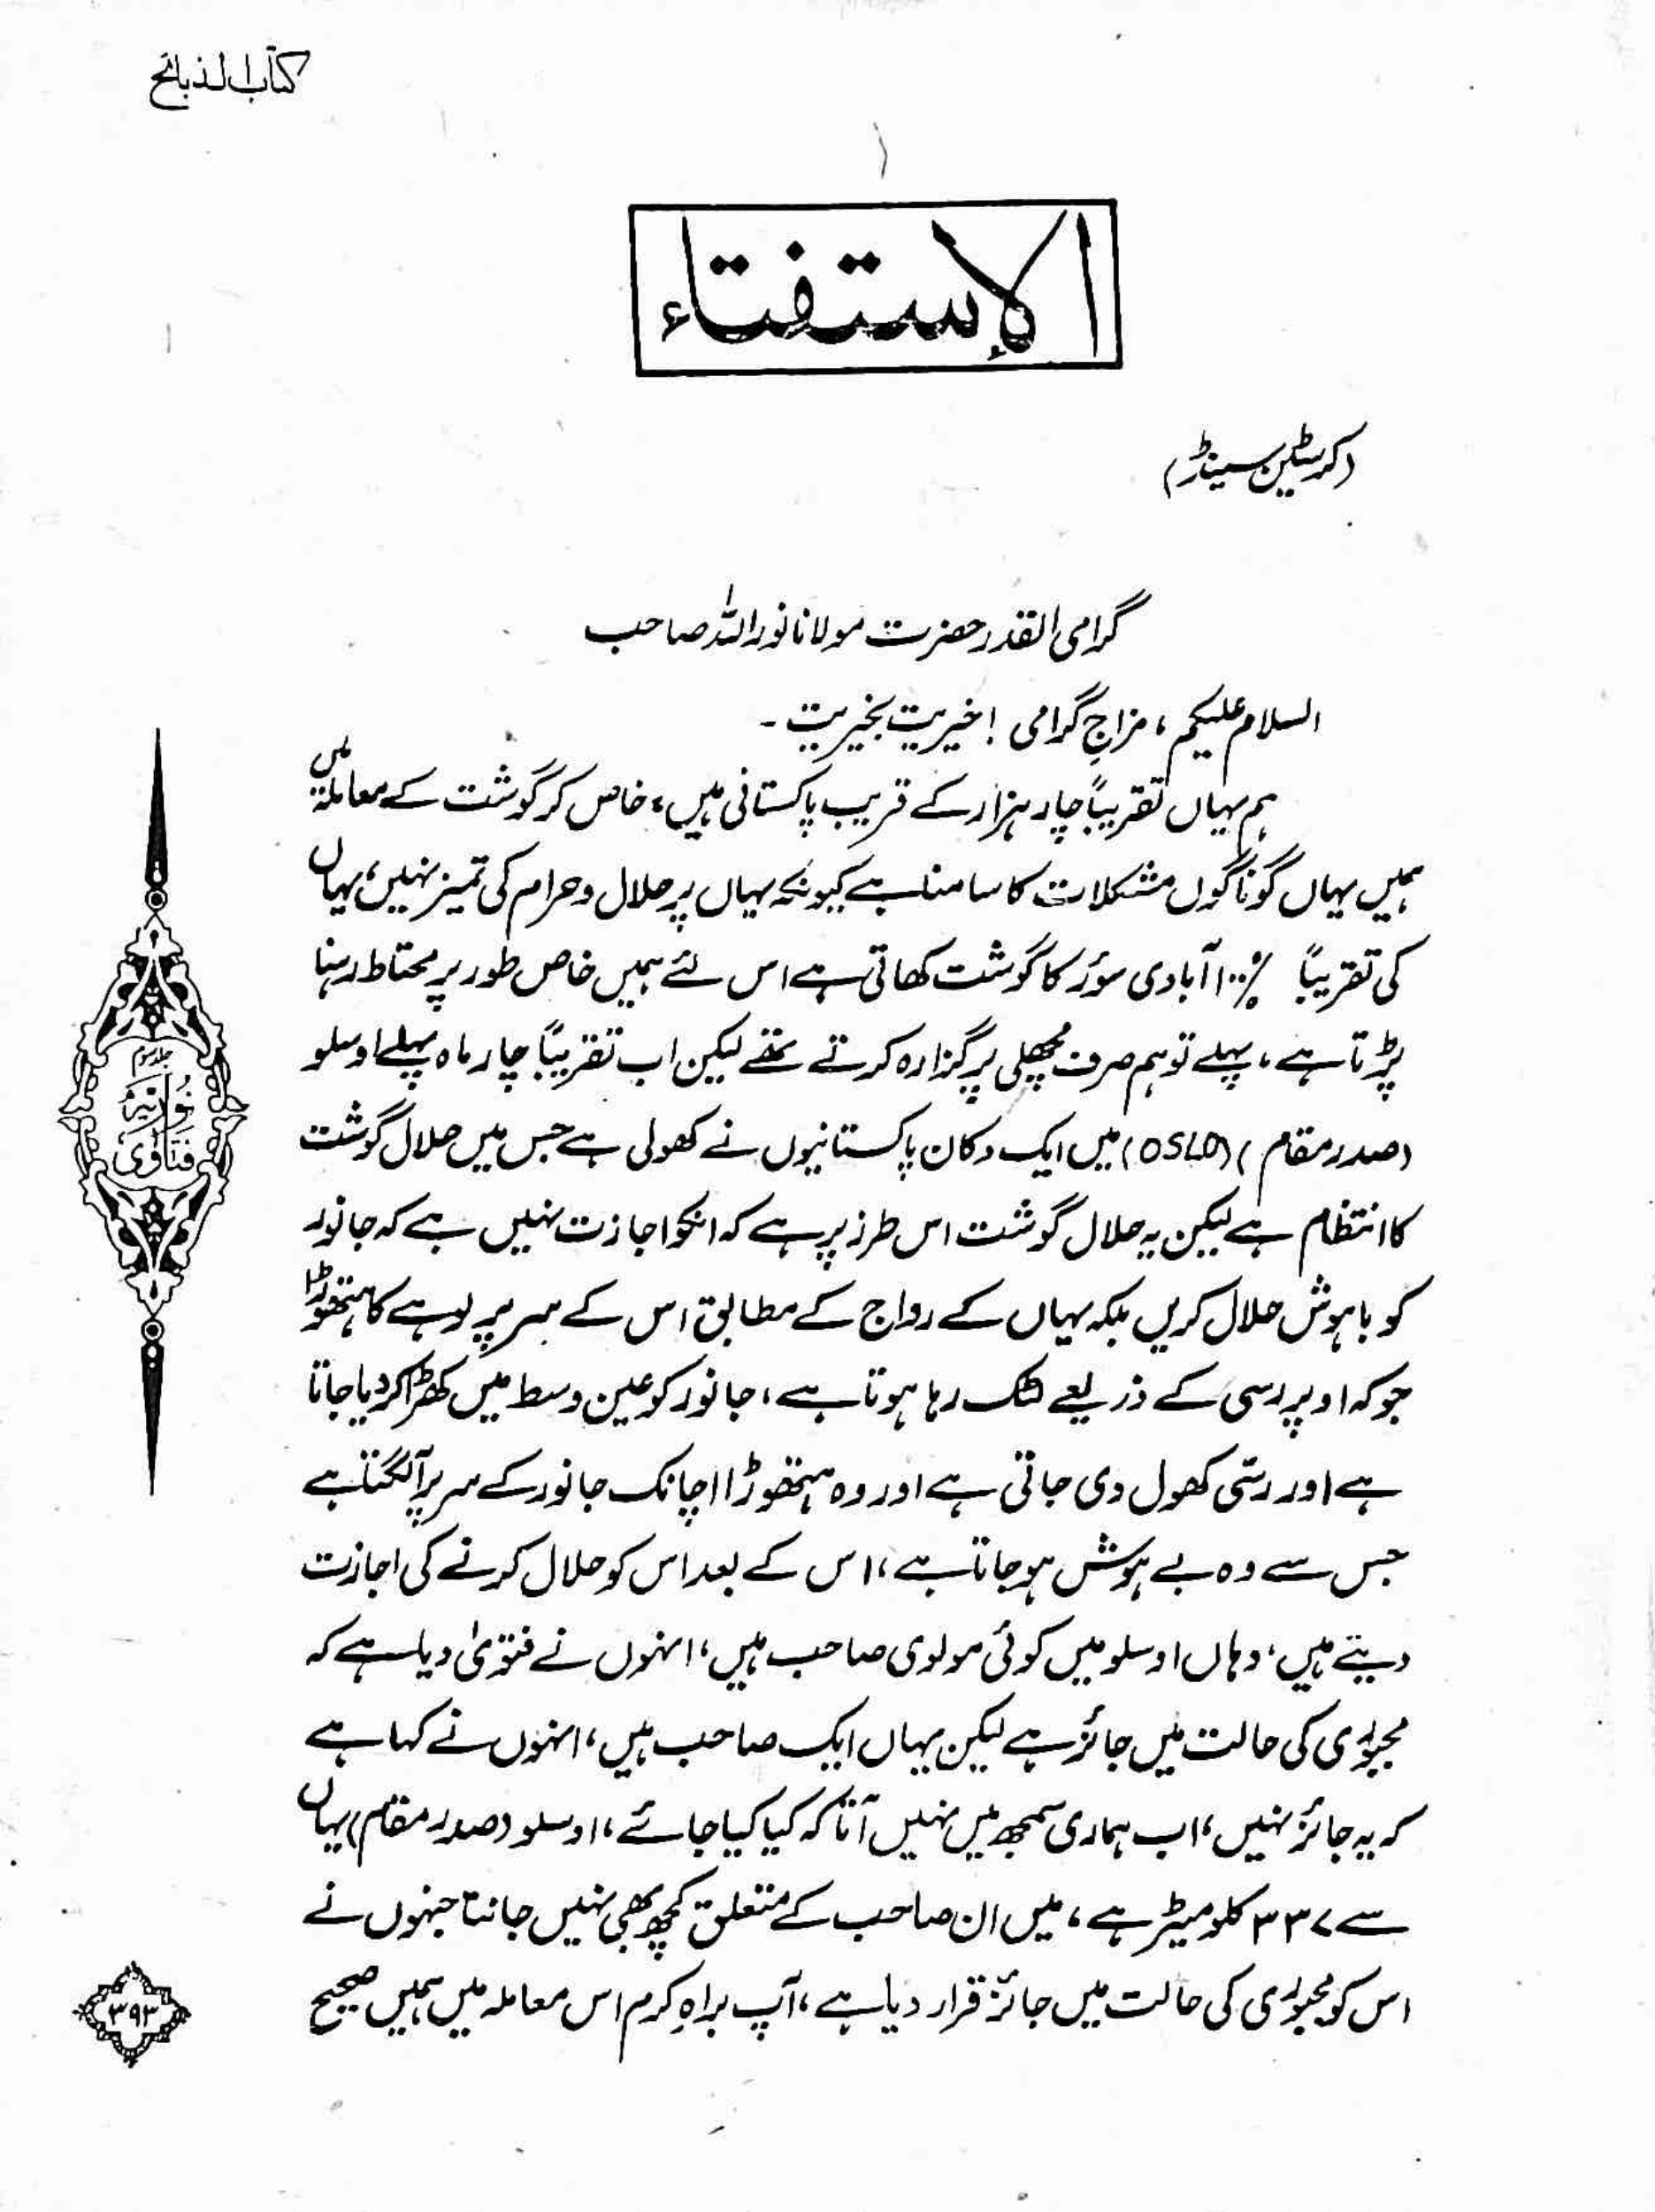 کتاب الذبائح
الإستفتاء
(کرسٹین سینڈ)
گرامی القدر حضرت مولانا نور اللہ صاحب
السلام علیکم ، مزاجِ گرامی ! خیریت بخیریت ۔
ہم یہاں تقریباً چار ہزار کے قریب پاکستانی ہیں، خاص کر گوشت کے معاملہ میں
ہمیں یہاں گوناگوں مشکلات کا سامنا ہے کیونکہ یہاں پر حلال و حرام کی تمیز نہیں، یہاں
کی تقریباً ۱۰۰٪ آبادی سؤر کا گوشت کھاتی ہے اس لئے ہمیں خاص طور پر محتاط رہنا
پڑتا ہے ، پہلے تو ہم صرف مچھلی پر گزارہ کرتے تھے لیکن اب تقریباً چار ماہ پہلے اوسلو
(صدر مقام) (OSLO) میں ایک دکان پاکستانیوں نے کھولی ہے جس میں حلال گوشت
کا انتظام ہے لیکن یہ حلال گوشت اس طرز پر ہے کہ انکو اجازت نہیں ہے کہ جانور
کو باہوش حلال کریں بلکہ یہاں کے رواج کے مطابق اس کے سر پر لوہے کا ہتھوڑا
جو کہ اوپر رسی کے ذریعے لٹک رہا ہوتا ہے ، جانور کو عین وسط میں کھڑا کر دیا جاتا
ہے اور رسّی کھول دی جاتی ہے اور وہ ہتھوڑا اچانک جانور کے سر پر آلگتا ہے
جس سے وہ بے ہوش ہو جاتا ہے ، اس کے بعد اس کو حلال کرنے کی اجازت
دیتے ہیں ، وہاں اوسلو میں کوئی مولوی صاحب ہیں ، انہوں نے فتویٰ دیا ہے کہ
مجبوری کی حالت میں جائز ہے لیکن یہاں ایک صاحب ہیں ، انہوں نے کہا ہے
کہ یہ جائز نہیں ، اب ہماری سمجھ میں نہیں آتا کہ کیا کیا جائے ، اوسلو (صدر مقام) یہاں
سے ۳۳۷ کلومیٹر ہے ، میں ان صاحب کے متعلق کچھ بھی نہیں جانتا جنہوں نے
اس کو مجبوری کی حالت میں جائز قرار دیا ہے ، آپ براہِ کرم اس معاملہ میں ہمیں صحیح
جلد سوم
نوریہ
فتاوٰی
۳۹۳